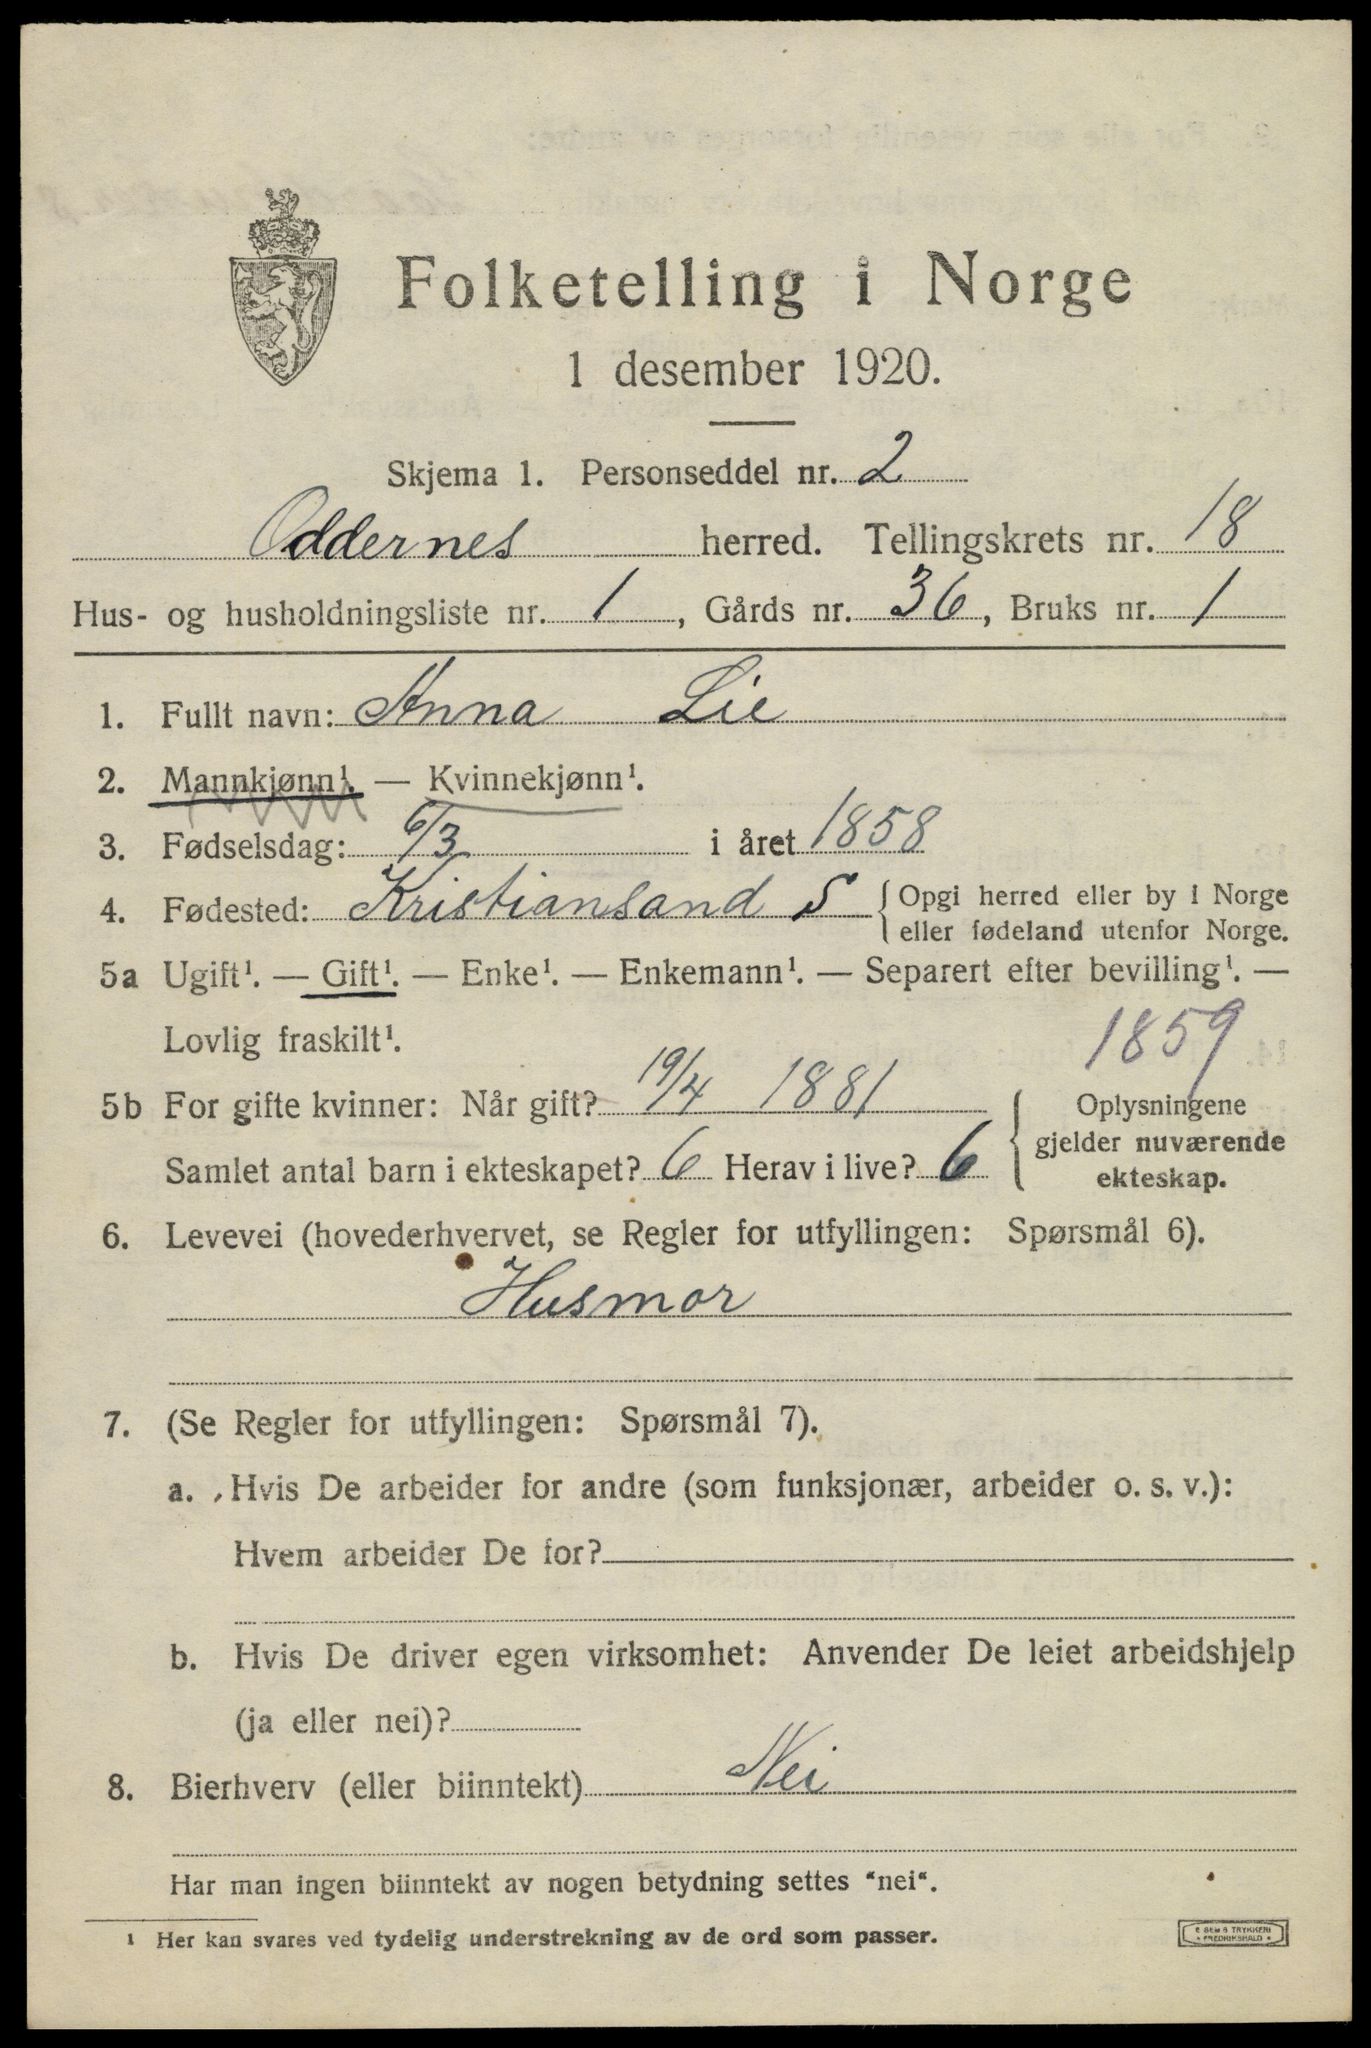 Folketelling i Norge
1 desember 1920.
Skjema 1. Personseddel nr. 2
Oddernes herred. Tellingskrets nr. 18
Hus- og husholdningsliste nr. 1, Gårds nr. 36, Bruks nr. 1
1. Fullt navn: Anna Lie
2. Mannkjønn¹. — Kvinnekjønn¹.
3. Fødselsdag: 6/3 i året 1858
4. Fødested: Kristiansand S { Opgi herred eller by i Norge
eller fødeland utenfor Norge.
5a Ugift¹. — Gift¹. — Enke¹. — Enkemann¹. — Separert efter bevilling¹. —
Lovlig fraskilt¹. 1859
5b For gifte kvinner: Når gift? 19/4 1881
Samlet antal barn i ekteskapet? 6 Herav i live? 6
{ Oplysningene
gjelder nuværende
ekteskap.
6. Levevei (hovederhvervet, se Regler for utfyllingen: Spørsmål 6).
Husmor
7. (Se Regler for utfyllingen: Spørsmål 7).
a. Hvis De arbeider for andre (som funksjonær, arbeider o. s. v.):
Hvem arbeider De for?
b. Hvis De driver egen virksomhet: Anvender De leiet arbeidshjelp
(ja eller nei)?
8. Bierhverv (eller biinntekt) Nei
Har man ingen biinntekt av nogen betydning settes "nei".
¹ Her kan svares ved tydelig understrekning av de ord som passer.
SEM & TRYKKERI
FREDRIKSHALD